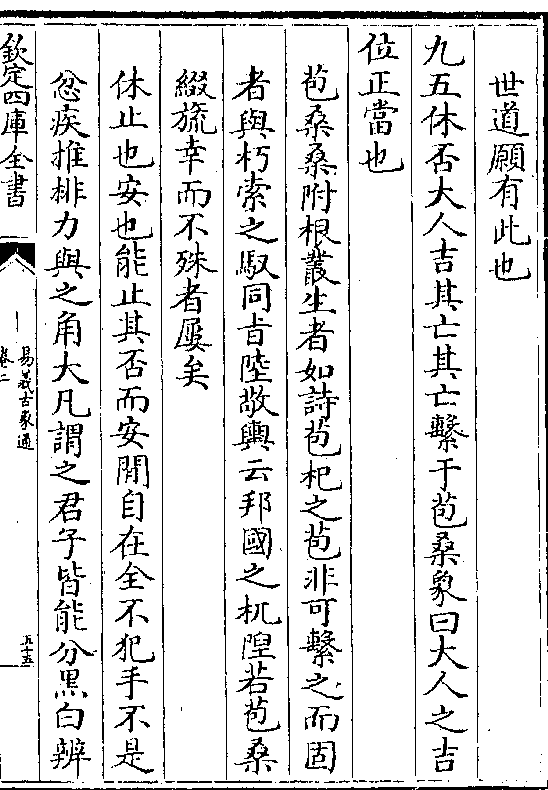 世道願有此也
九五休否大人吉其亡其亡繫于苞桑象曰大人之吉
位正當也
苞桑桑附根叢生者如詩苞杞之苞非可繫之而固
者與朽索之馭同旨陸敬輿云邦國之杌隉若苞桑
綴旒幸而不殊者屢矣
休止也安也能止其否而安閒自在全不犯手不是
忿疾推排力與之角大凡謂之君子皆能分黑白辨
欽定四庫全書
易義古象通
卷二
五十五